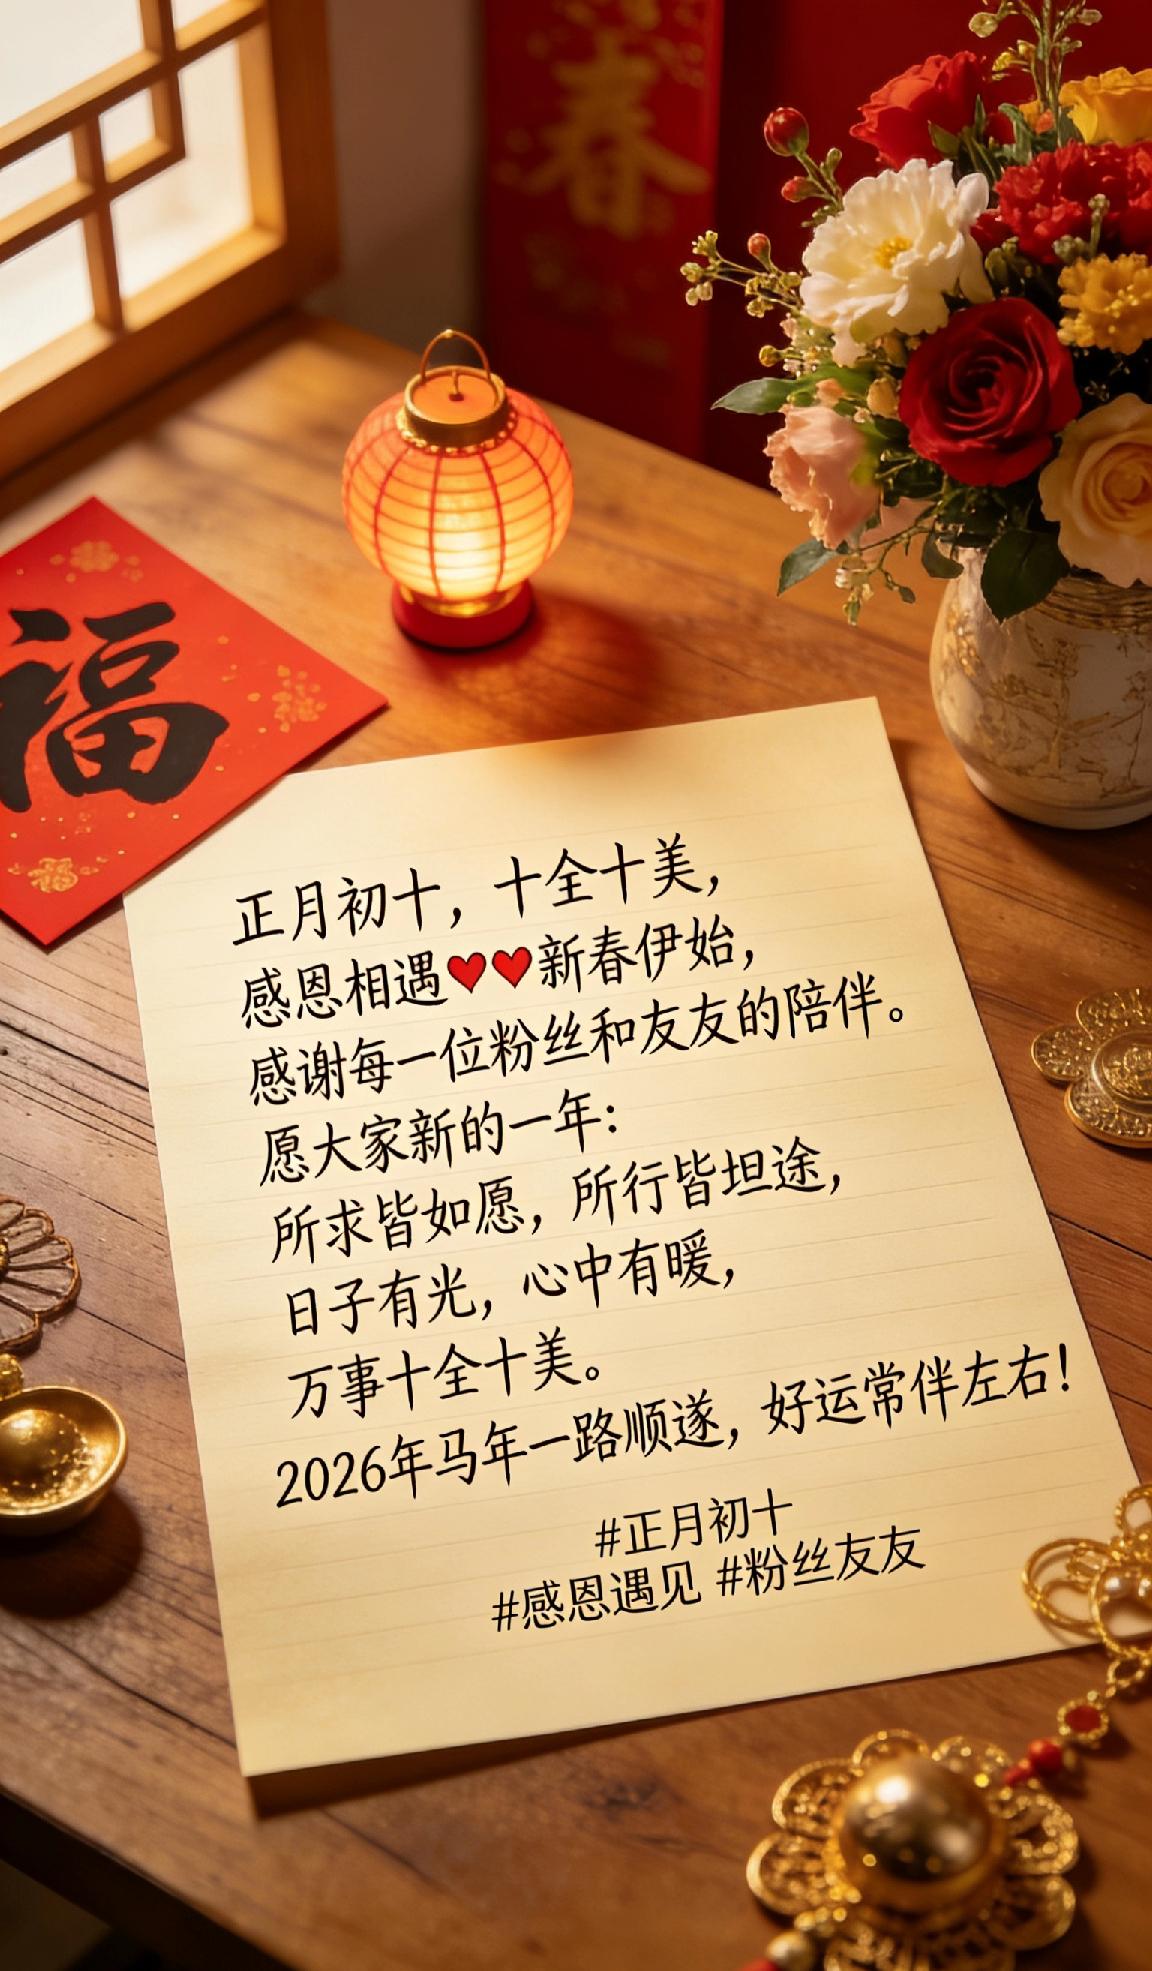 春
福
正月初十，十全十美，
感恩相遇❤❤新春伊始，
感谢每一位粉丝和友友的陪伴。
愿大家新的一年：
所求皆如愿，所行皆坦途，
日子有光，心中有暖，
万事十全十美。
2026年马年一路顺遂，好运常伴左右！
#正月初十
#感恩遇见 #粉丝友友